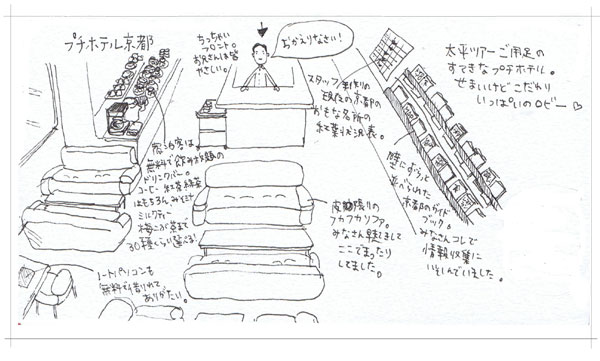 プチホテル京都
ちっちゃい
フロント。
お兄さんは皆
やさしい。
おかえりなさい!
スタッフ手作りの
現在の京都の
おもな名所の
紅葉状況表。
太平ツアーご用足の
すてきなプチホテル。
せまいけどこだわり
いっぱいのロビー♡
宿泊客は
無料で飲み放題の
ドリンクバー。
コーヒー 紅茶 緑茶
はもちろん
ミルクティー
梅こぶ茶まで
30種ぐらい選べる!
ノートパソコンも
無料で借りれて
ありがたい。
皮張りの
フカフカソファ。
みなさん
ここでまったり
してました。
壁にずらっと
並べられた
京都のガイド
ブック。
みなさんコレで
情報収集に
いそしんでいました。